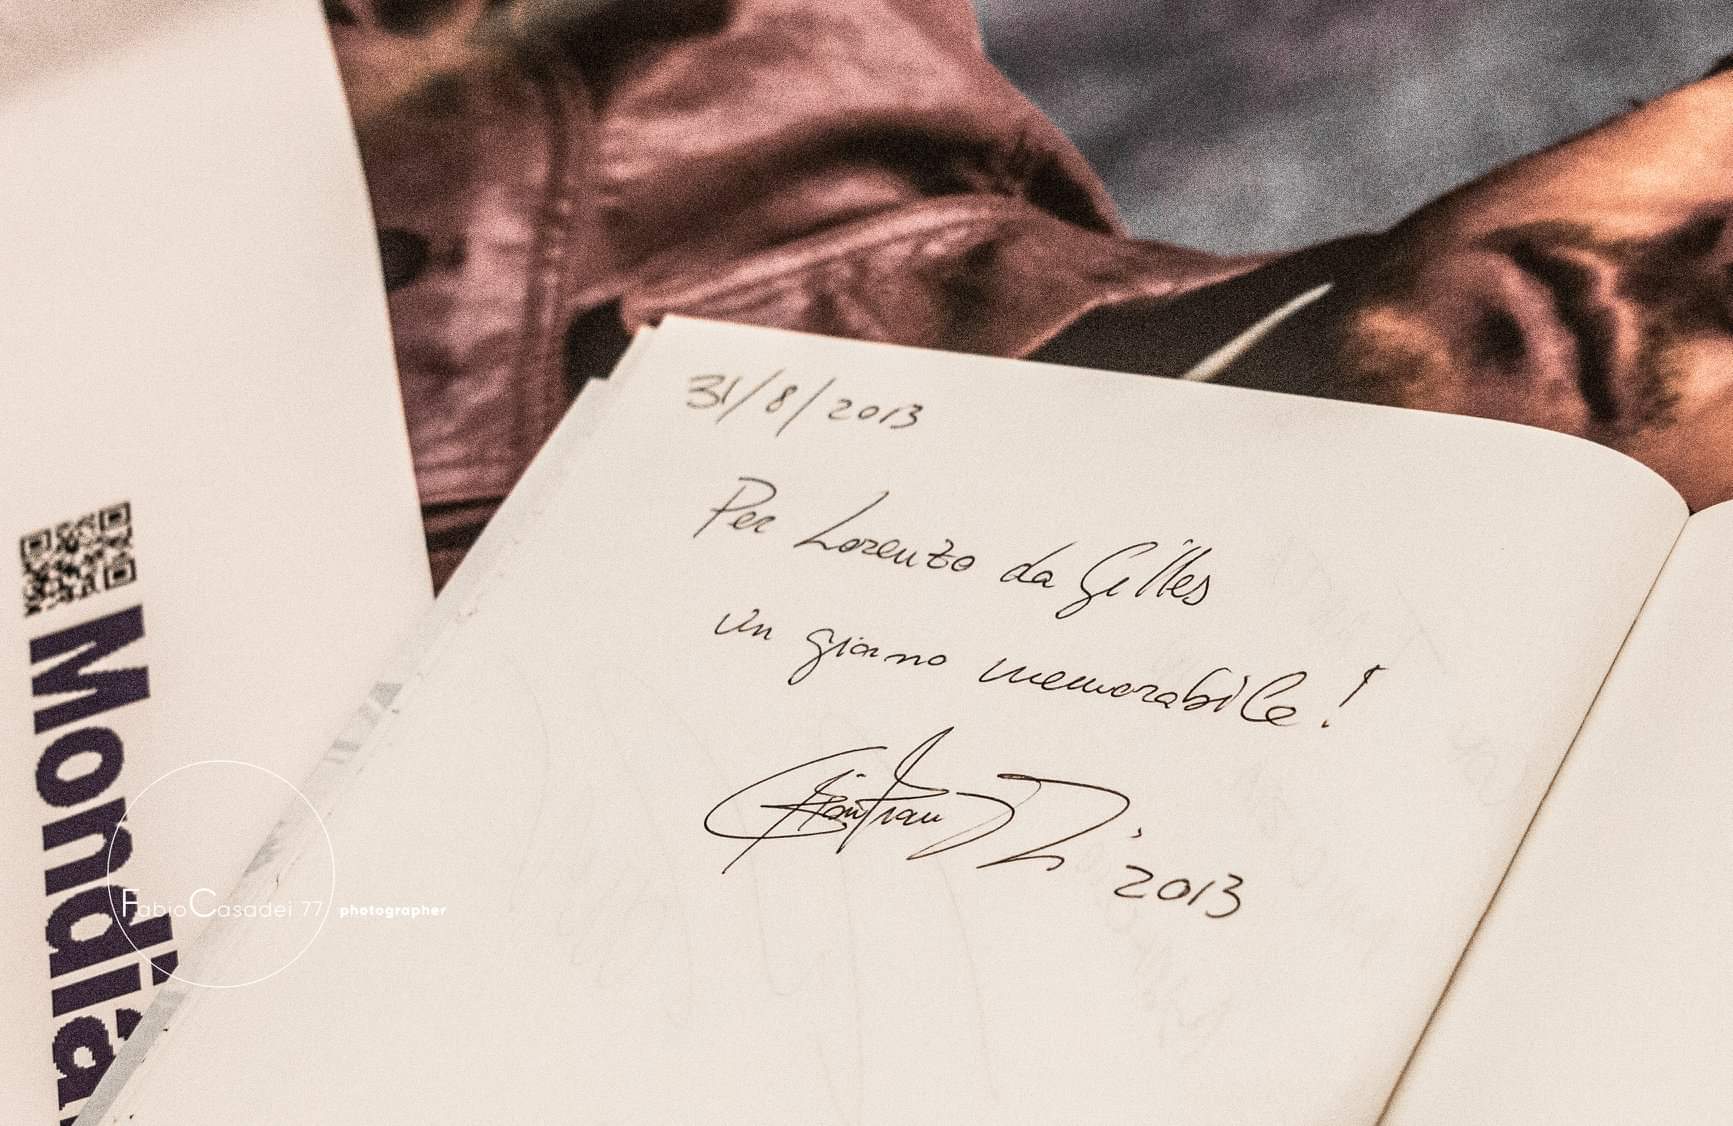 31/8/2013
Per Lorenzo da Gilles
un giorno memorabile!
2013
Mondia
Fabio Casadei 77 photographer